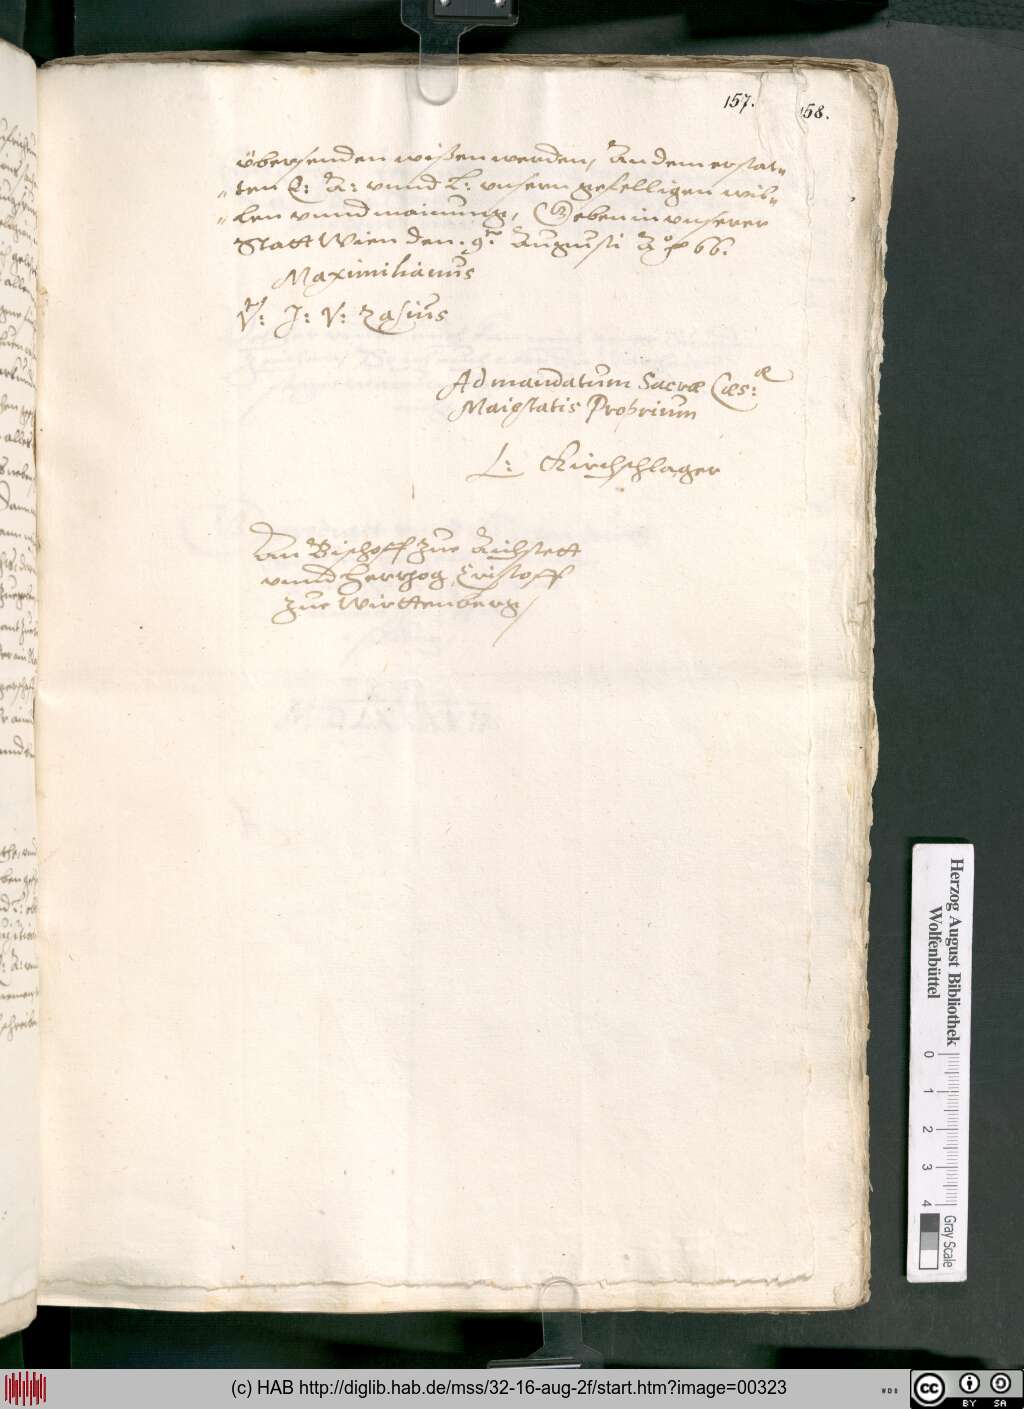 157.
158.
übersenden wißen werden, An dem erstat=
=ten E: A: vnnd L: vnsern gefelligen wil=
=len vnnd mainung, Geben in vnserer
Statt Wien den .9.ten Augusti Aº p 66.
Maximilianus
Vt: J: V: Zasius
Ad mandatum Sacræ Cæs:æ
Maiestatis Proprium
L: Kirchschlager
An Bischoff zue Aichstett
vnnd Hertzog Cristoff
zue Wirttenberg /
Herzog August Bibliothek
Wolfenbüttel
0 1 2 3 4
Gray Scale
(c) HAB http://diglib.hab.de/mss/32-16-aug-2f/start.htm?image=00323
WDB
cc BY SA